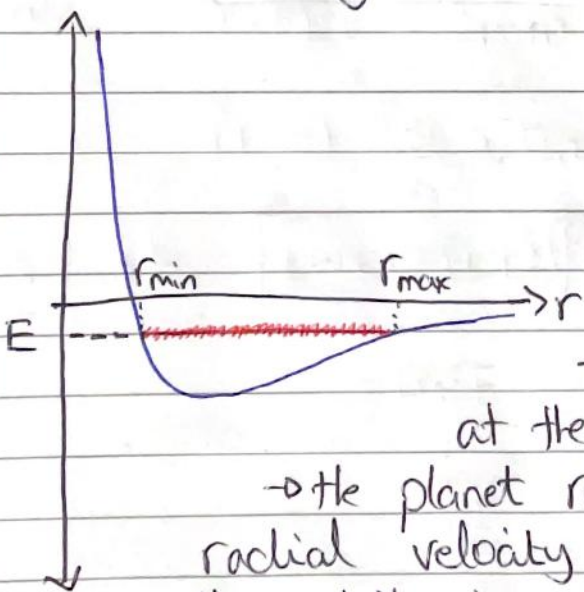 rmin
rmax
r
E
at the
→ the planet r
radial velocity